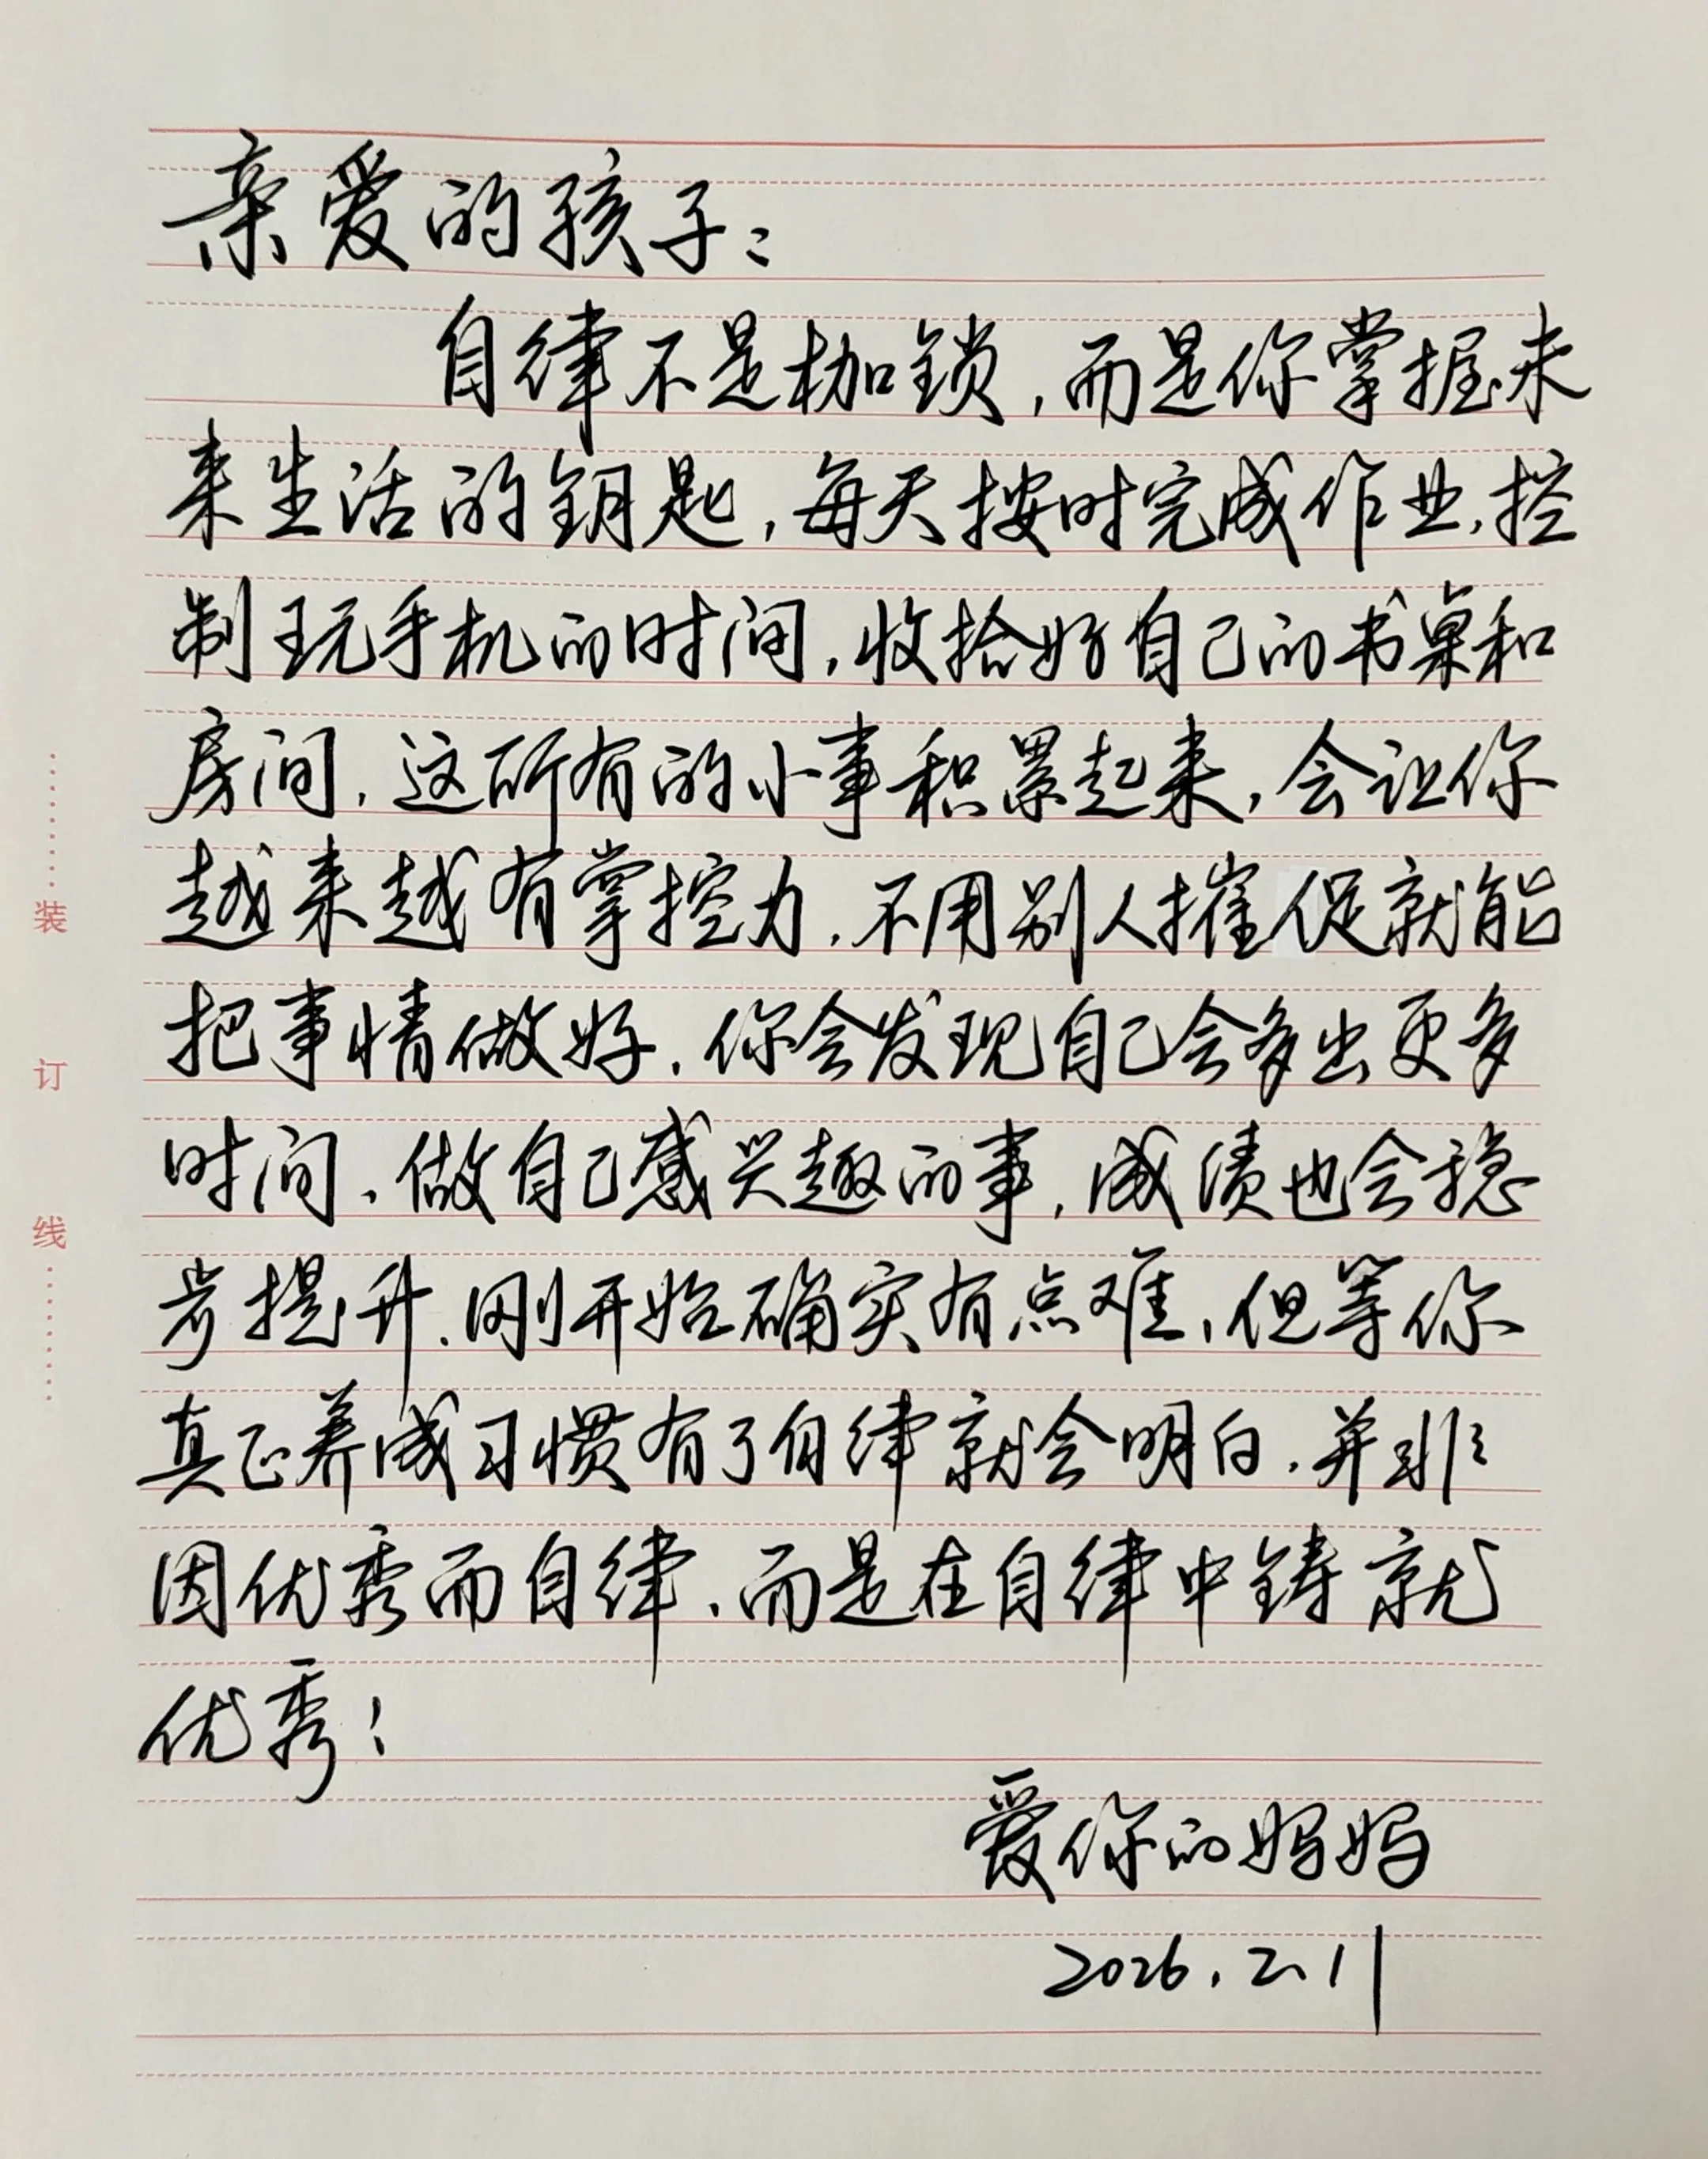 亲爱的孩子：
自律不是枷锁，而是你掌握未
来生活的钥匙，每天按时完成作业，控
制玩手机的时间，收拾好自己的书桌和
房间，这所有的小事积累起来，会让你
越来越有掌控力，不用别人摧促就能
把事情做好，你会发现自己会多出更多
时间、做自己感兴趣的事，成绩也会稳
步提升.刚开始确实有点难、但等你
真正养成习惯有了自律就会明白，并非
因优秀而自律、而是在自律中铸就
优秀！
爱你的妈妈
2026.2.11
装
订
线